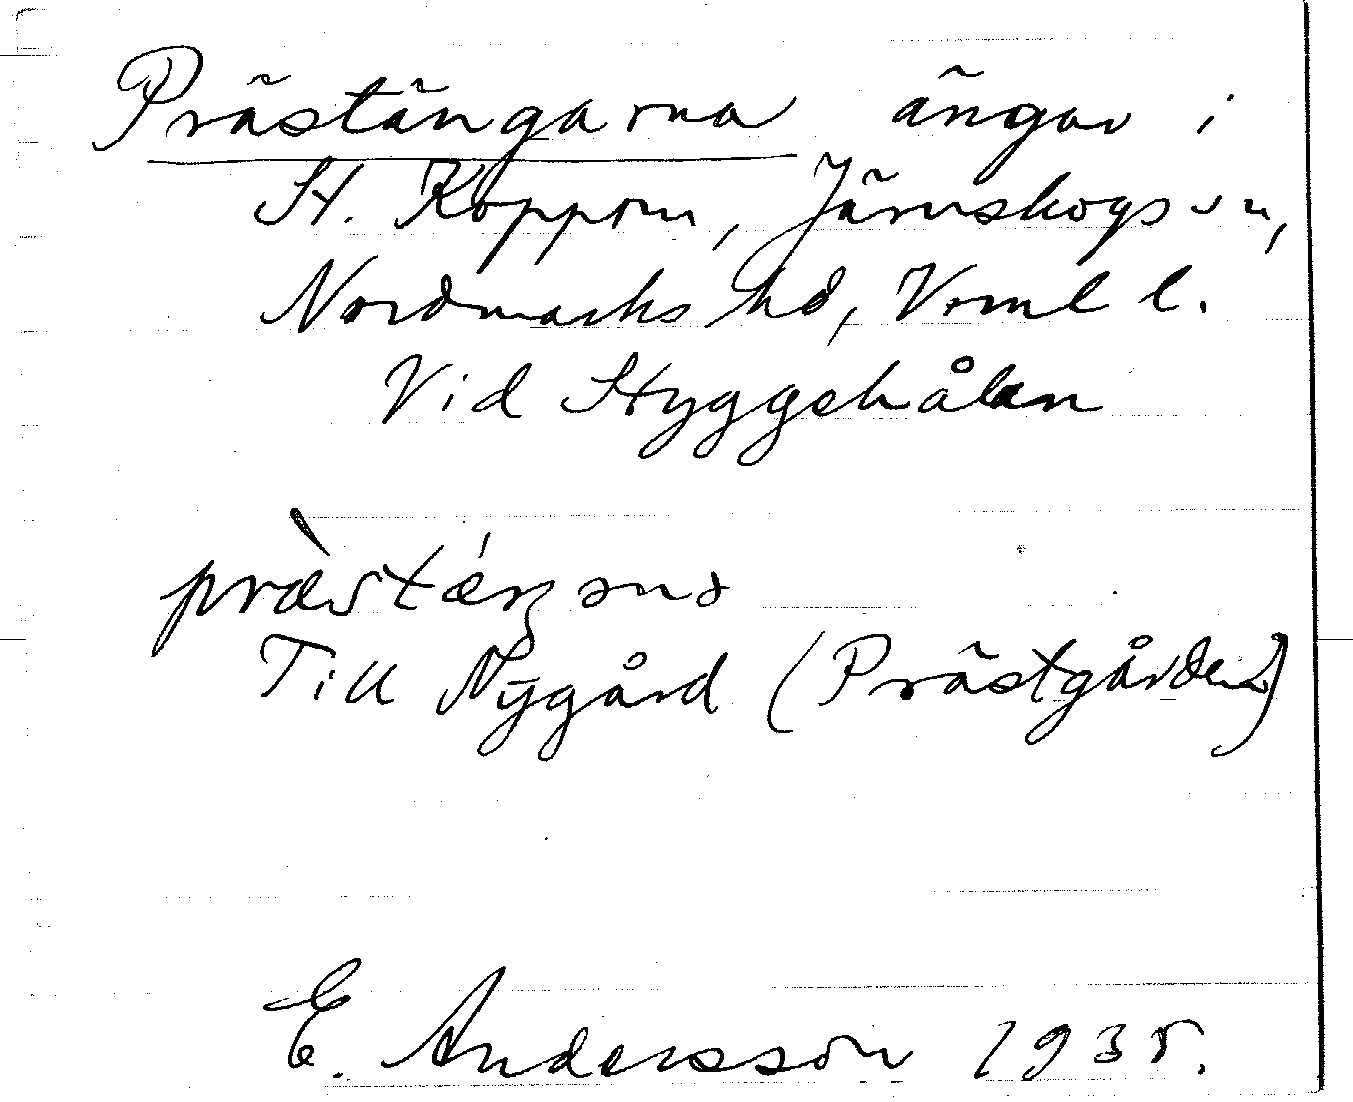 Prästängarna ängar i
St. Koppom, Järnskogs sn,
Nordmarks hd, Vrml l.
Vid Styggehålan
Till Nygård (Prästgården)
E. Andersson 1935.